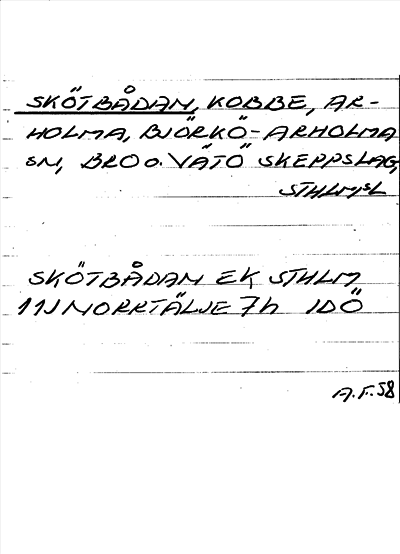 SKÖTBÅDAN, KOBBE, AR-
HOLMA, BJÖRKÖ-ARHOLMA
SN, BRO o. VÄTÖ SKEPPSLAG,
STHLMSL
SKÖTBÅDAN EK STHLM
11J NORRTÄLJE 7h IDÖ
A.F. 58